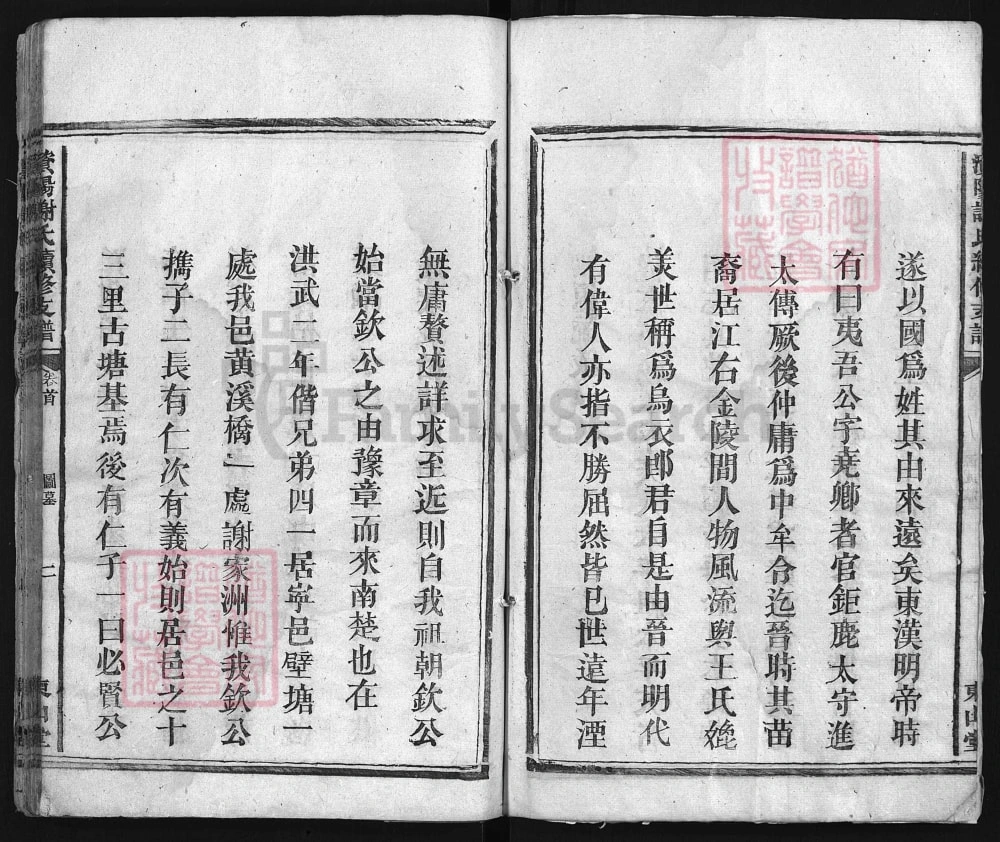 遂以國爲姓其由來遠矣東漢明帝時
有曰夷吾公字堯卿者官鉅鹿太守進
太傅厥後仲庸爲中牟令迄晉時其苗
裔居江右金陵間人物風流與王氏媲
美世稱爲烏衣郎君自是由晉而明代
有偉人亦指不勝屈然皆已世遠年湮
無庸贅述詳求至近則自我祖朝欽公
始當欽公之由豫章而來南楚也在
洪武二年偕兄弟四一居寧邑壁塘一
處我邑黃溪橋一處謝家洲惟我欽公
擕子二長有仁次有義始則居邑之十
三里古塘基焉後有仁子一曰必賢公
資陽謝氏續修支譜
卷首
圖墓
二
東山堂
FamilySearch